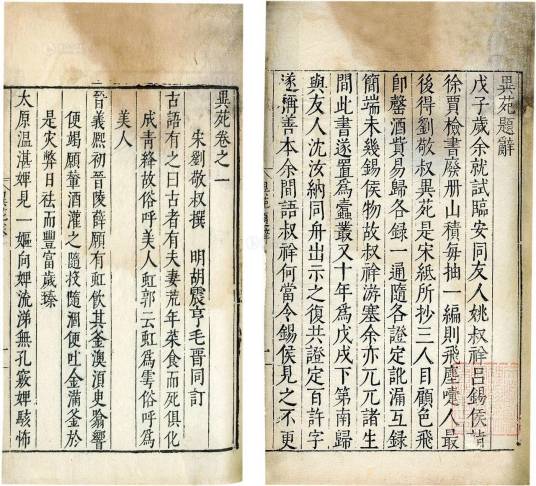 異苑題辭
戊子歲余就試臨安同友人姚叔祥呂錫侯詣
徐賈檢書廢册山積每抽一編則飛塵嚏人最
後得劉敬叔異苑是宋紙所抄三人目顧色飛
即罄酒貲易歸各錄一通隨各證定訛漏互錄
簡端未幾錫侯物故叔祥游塞余亦兀兀諸生
間此書遂置爲蠹叢又十年爲戊戌下第南歸
與友人沈汝納同舟出示之復共證定百許字
遂稱善本余間語叔祥何當令錫侯見之不更
異苑卷之一
宋劉敬叔撰 明胡震亨毛晉同訂
古語有之曰古者有夫妻荒年菜食而死俱化
成靑絳故俗呼美人虹郭云虹爲雩俗呼爲
美人
晉義熙初晉陵薛願有虹飲其釜澳須臾翕響
便竭願輦酒灌之隨投隨涸便吐金滿釜於
是灾弊日祛而豐富歲臻
太原溫湛婢見一嫗向婢流涕無孔竅婢駭怖